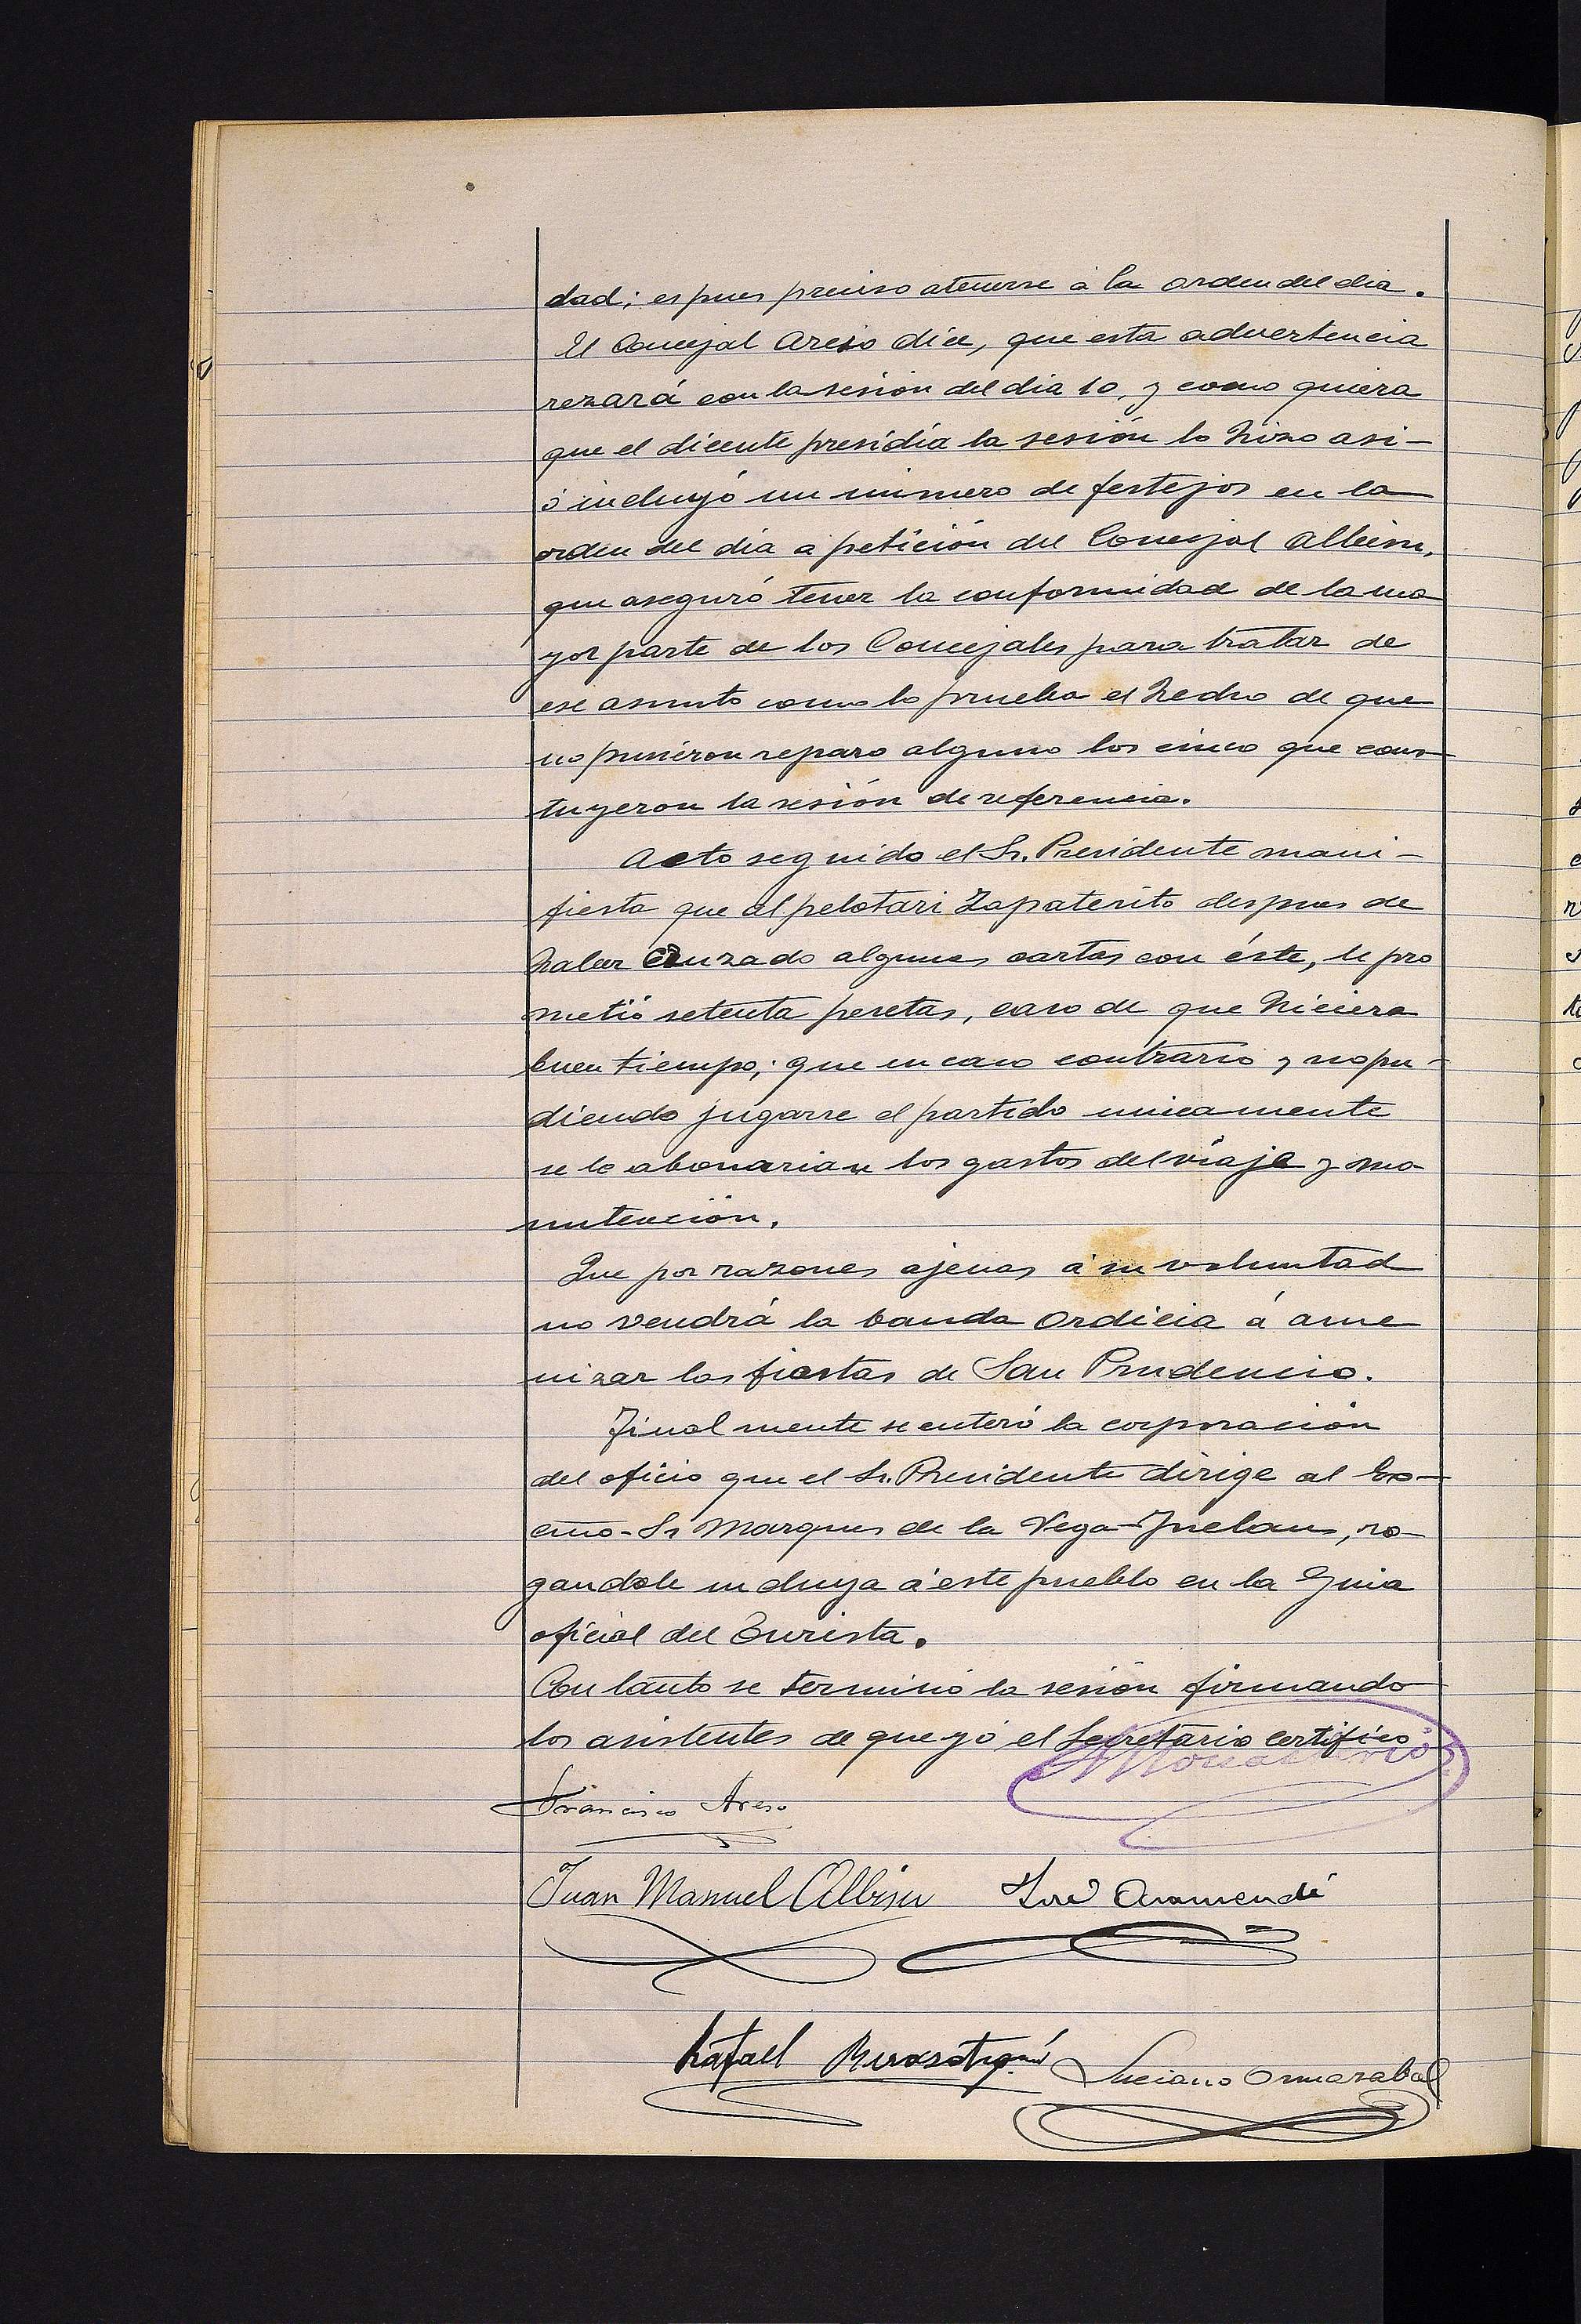 dad; es pues preciso atenerse á la orden del dia.
El Concejal Areso dice, que esta advertencia
rezará con la sesión del dia 10, y como quiera
que el dicente presidía la sesión lo hizo asi-
ó incluyó un número de festejos en la
orden del día a petición del Concejal Albisu,
que aseguró tener la conformidad de la ma
yor parte de los Concejales para tratar de
ese asunto como lo prueba el hecho de que
no pusieron reparo alguno los cinco que cons-
tuyeron la sesión de referencia.
Acto seguido el Sr. Presidente mani-
fiesta que al pelotari Zapaterito despues de
haber cruzado algunas cartas con éste, le pro
metió setenta pesetas, caso de que hiciera
buen tiempo; que en caso contrario y no pu-
diendo jugarse el partido unicamente
se le abonarian los gastos del viaje y ma
nutención.
Que por razones ajenas á su voluntad
no vendrá la banda Ordicia á ame
nizar las fiestas de San Prudencio.
Finalmente se enteró la corporación
del oficio que el Sr. Presidente dirige al Ex-
cmo-Sr Marques de la Vega-Inclan, ro-
gandole incluya á este pueblo en la Guia
oficial del Turista.
Con tanto se terminó la sesión firmando
los asistentes de que yó el Secretario certifico
Francisco Areso
Juan Manuel Albisu José Aramendi
Rafael Luciano Ormazabal